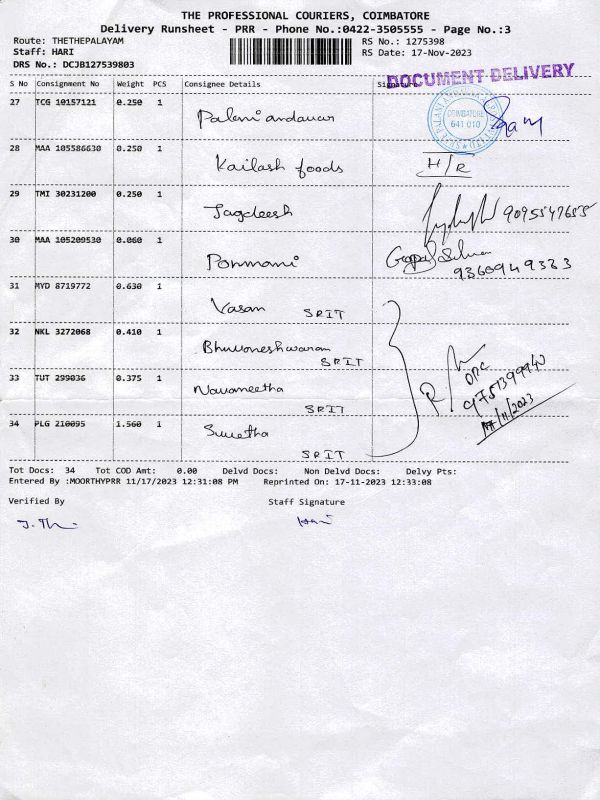 THE PROFESSIONAL COURIERS, COIMBATORE
Delivery Runsheet - PRR - Phone No.:0422-3505555 - Page No.:3
Route: THETHEPALAYAM RS No.: 1275398
Staff: HARI RS Date: 17-Nov-2023
DRS No.: DCJB127539803
DOCUMENT DELIVERY
S No Consignment No Weight PCS Consignee Details Signature
27 TCG 10157121 0.250 1 Palani andavar
COIMBATORE
641 010
28 MAA 105586630 0.250 1 Kailash foods H/R
29 TMI 30231200 0.250 1 Jagdeesh 9095547655
30 MAA 105209530 0.060 1 Ponmani
9360949333
31 MYD 8719772 0.630 1 Vasan SRIT
32 NKL 3272068 0.410 1 Bhuvaneshwaran SRIT
33 TUT 299036 0.375 1 Navaneetha SRIT
34 PLG 210095 1.560 1 Swetha SRIT
Tot Docs: 34 Tot COD Amt: 0.00 Delvd Docs: Non Delvd Docs: Delvy Pts:
Entered By :MOORTHYPRR 11/17/2023 12:31:08 PM Reprinted On: 17-11-2023 12:33:08
Verified By Staff Signature
Hari